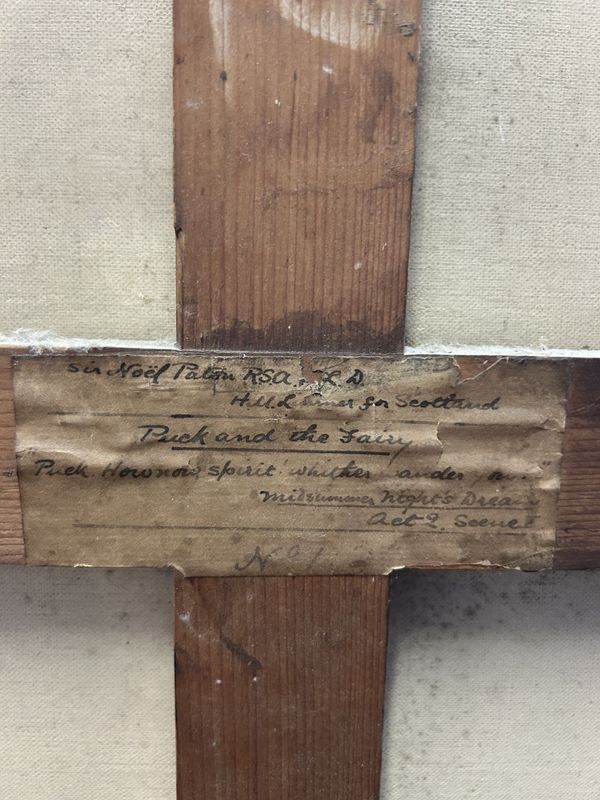 Sir Noël Paton RSA., L.D.
H.M. Limner for Scotland
Puck and the Fairy
"Puck. How now, spirit whither wander you."
Midsummer Night's Dream
Act 2. Scene 1
No 1